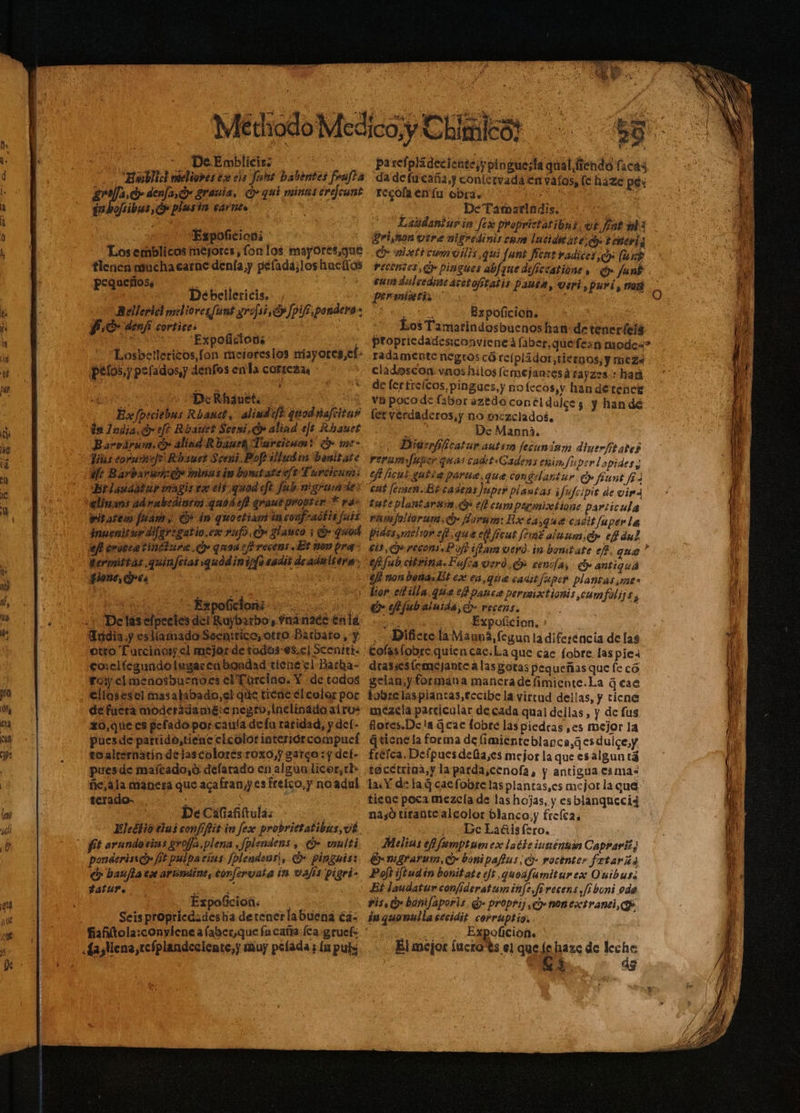 Methodo Medico, y Chimico: 53
De Emblicis:
Emblici meliores ex eis sunt habentes frusta
grossa, & densa, & grauia, & qui minus crescunt
in hossibus, & plus in carne.
Exposicion:
Los emblicos mejores, son los mayores, que
tienen mucha carne densa, y pesada; los huessos
pequeños.
De bellericis.
Bellerici meliores sunt grossi, & spissi, ponderosi, & densi cortice.
Exposicion:
Los bellericos, son mejores los mayores, espesos, y pesados, y densos en la corteza.
De Rhauet.
Ex speciebus Rhauet, aliud est quod nascitur
in India, & est Rhauet Sceni, & aliud est Rhauet
Barbarum, & aliud Rhauet Turcicum: & melius eorum est Rhauet Sceni. Post illud in bonitate
est Barbarum: & minus in bonitate est Turcicum.
Et laudatur magis ex eis, quod est sub nigrum declinans ad rubedinem quod est graue propter raritatem suam, & in quo etiam in confractis suis
inuenitur disgregatio, ex rufo, & glauco; & quod
est crocea tincture, & quod est recens. Et non praetermittas, quin scias, quòd in ipso cadit de adultera-
tione, &c.
Exposicion:
De las especies del Ruybarbo, vna nace en la
India, y es llamado Scenitico; otro Barbaro, y
otro Turcino; y el mejor de todos es, el Sceniti-
co: el segundo lugar en bondad tiene el Barba-
ro; y el menos bueno es el Turcino. Y de todos
ellos es el mas alabado, el que tiene el color por
de fuera moderadaméte negro, inclinado al ro-
xo, que es pesado por causa de su raridad; y des-
pues de partido, tiene el color interior compues-
to alternatin de las colores roxo, y garço: y des-
pues de mascado, ò desatado en algun licor, ti-
ñe, à la manera que açafran, y es fresco, y no adul
terado.
De Casiafistula:
Electio eius consistit in sex proprietatibus, vt
sit arundo eius grossa, plena, splendens, & multi
ponderis: & sit pulpa eius splendens, & pinguis:
& hausta ex arundine, conseruata in vasis pigri-
tatur.
Exposicion.
Seis propriedades ha de tener la buena Ca-
siafistola: conviene a saber, que su caña sea grues-
sa, llena, resplandeciente, y muy pesada; su pul-
pa resplãdeciente, y pingue; la qual, siendo saca-
da de su caña, y conservada en vasos, se haze pe-
reçosa en su obra.
De Tamarindis.
Laudantur in sex proprietatibus, vt sint ni-
gri, non vere nigredinis cum luciditate, & teneri,
& mixti cum vilis, qui sunt sicut radices, & sunt
recentes, & pingues absque desiccatione, & sunt
cum dulcedine acetositatis pauca, veri, puri, non
permixti.
Exposicion.
Los Tamarindos buenos han de tener seis
propriedades: conviene à saber, que sean mode-
radamente negros cõ resplãdor, tiernos, y mez-
clados con vnos hilos semejantes à rayzes: han
de ser frescos, pingues, y no secos, y han de tener
vn poco de sabor azedo con el dulçe; y han de
ser verdaderos, y no mezclados.
De Manna.
Diuersificatur autem secundum diuersitates
rerum, super quas cadit. Cadens enim super lapides,
est sicut gutta parua, qua congelantur, & fiunt si-
cut semen. Et cadens super plantas, suscipit de virtute plantarum, & est cum permixtione particula
rum foliorum, & florum: Ex ea, qua cadit super la
pides, melior est, qua est sicut semè album, & est dul
cis, & recens. Post istam verò in bonitate est, qua
est sub citrina. Fusca verò, & cenosa, & antiqua
est non bona. Et ex ea, qua cadit super plantas, me-
lior est illa, qua est pauca permixtionis, cum folijs,
& est sub aluida, & recens.
Exposicion.
Difiere la Manná, segun la diferencia de las
cosas sobre quien cae. La que cae sobre las pie-
dras, es semejante a las gotas pequeñas que se cõ
gelan, y forman a manera de simiente. La q cae
sobre las plantas, recibe la virtud dellas, y tiene
mezcla particular de cada qual dellas, y de sus
flores. De la q cae sobre las piedras, es mejor la
q tiene la forma de simiente blanca, q es dulçe, y
fresca. Despues desta, es mejor la que es algun tã
to cetrina, y la parda, cenosa, y antigua es ma-
la. Y de la q cae sobre las plantas, es mejor la que
tiene poca mezcla de las hojas, y es blanqueci-
na, ò tirante al color blanco, y fresca.
De Lactis sero.
Melius est sumptum ex lacte iuuenum Caprarũ,
& nigrarum, & boni pastus, & recenter fætarũ.
Post istud in bonitate est, quod sumitur ex Ouibus.
Et laudatur consideratum in se, si recens, si boni odo
ris, & boni saporis, & proprij, & non extranei, &
in quo nulla cecidit corruptio.
Exposicion.
El mejor suero es el que se haze de leche
de